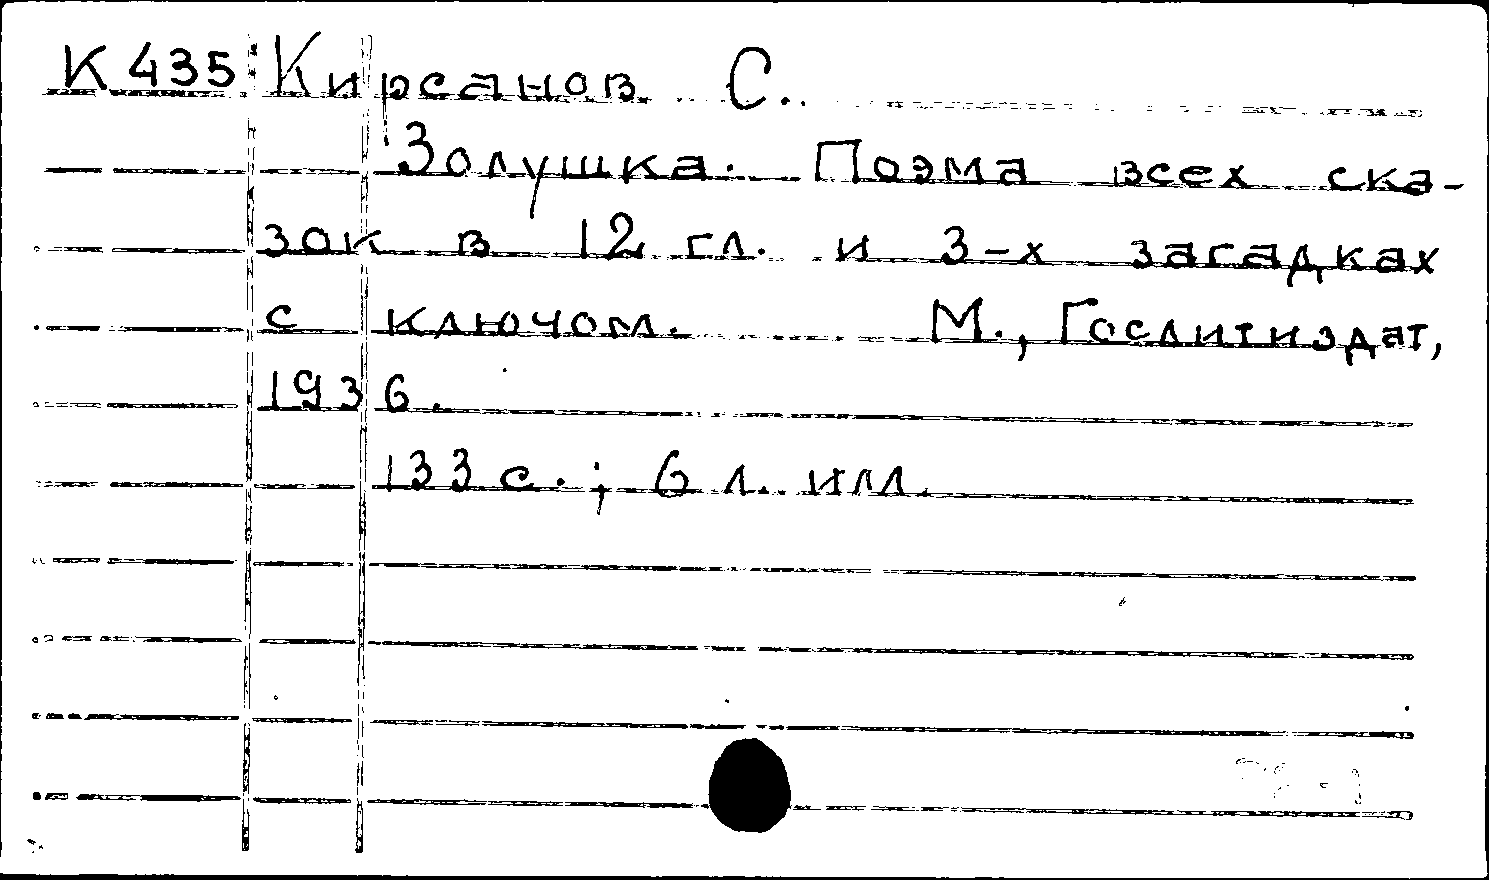 К 435 Кирсанов С.
Золушка. Поэма всех ска-
зок в 12 гл. и 3-х загадках
с ключом. М., Гослитиздат,
1936.
133 с.; 6 л. илл.